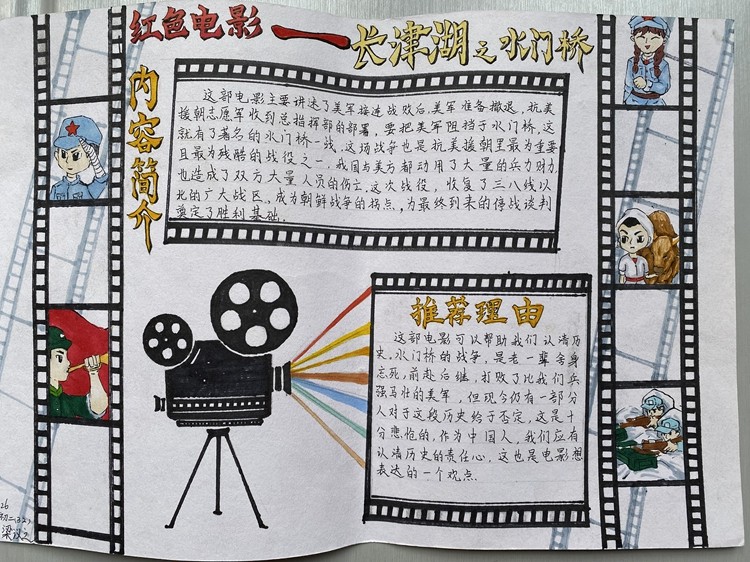 红色电影——长津湖之水门桥
内容简介
这部电影主要讲述了美军接连战败后,美军准备撤退,抗美
援朝志愿军收到总指挥部的部署,要把美军阻挡于水门桥,这
就有了著名的水门桥一战,这场战争也是抗美援朝里最为重要
且最为残酷的战役之一,我国与美方都动用了大量的兵力财力,
也造成了双方大量人员的伤亡,这次战役,收复了三八线以
北的广大战区,成为朝鲜战争的拐点,为最终到来的停战谈判
奠定了胜利基础.
推荐理由
这部电影可以帮助我们认清历
史,水门桥的战争,是老一辈舍身
忘死,前赴后继,打败了比我们兵
强马壮的美军,但现今仍有一部分
人对于这段历史给予否定,这是十
分悲怆的,作为中国人,我们应有
认清历史的责任心,这也是电影想
表达的一个观点.
26